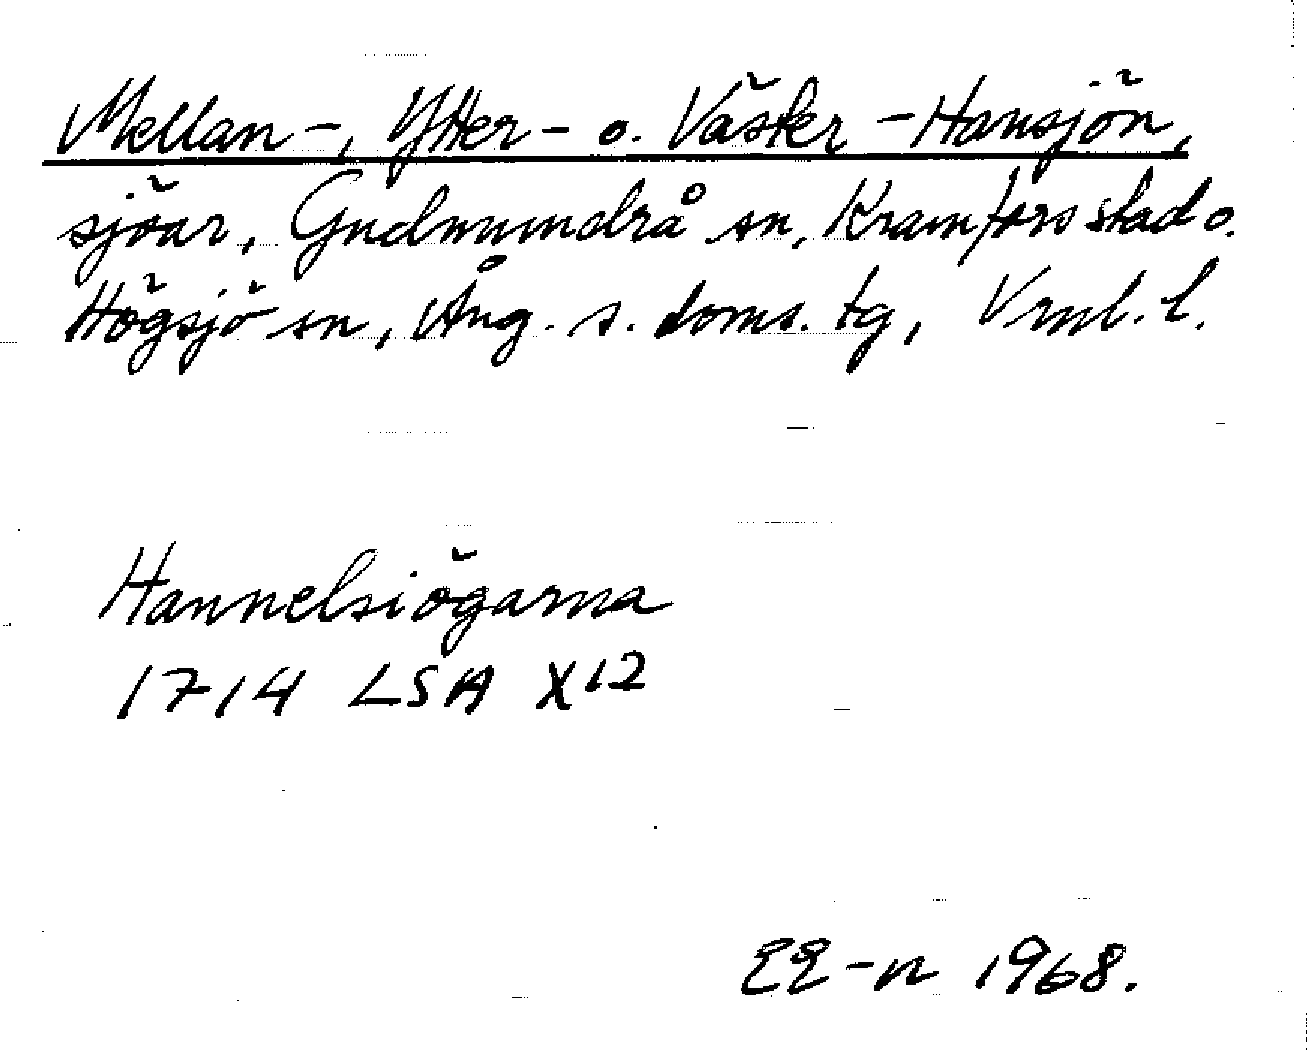 Mellan-, Ytter- o. Väster-Hansjön,
sjöar, Gudmundrå sn, Kramfors stad o.
Högsjö sn, Ång. s. doms. tg, Vrnl. l.
Hannelsiögarna
1714 LSA X12
EE-n 1968.